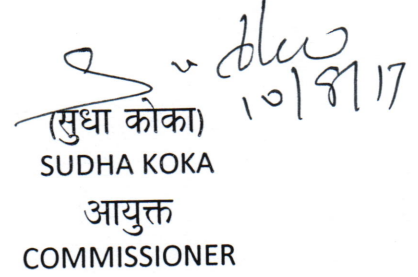 10/8/17
(सुधा कोका)
SUDHA KOKA
आयुक्त
COMMISSIONER